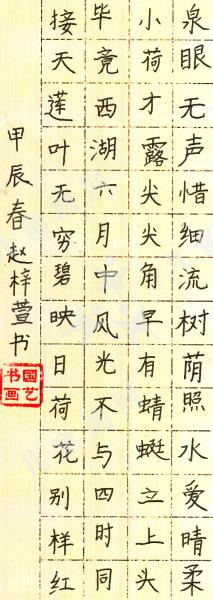 泉眼无声惜细流树荫照水爱晴柔
小荷才露尖尖角早有蜻蜓立上头
毕竟西湖六月中风光不与四时同
接天莲叶无穷碧映日荷花别样红
甲辰春赵梓萱书
国艺
书画